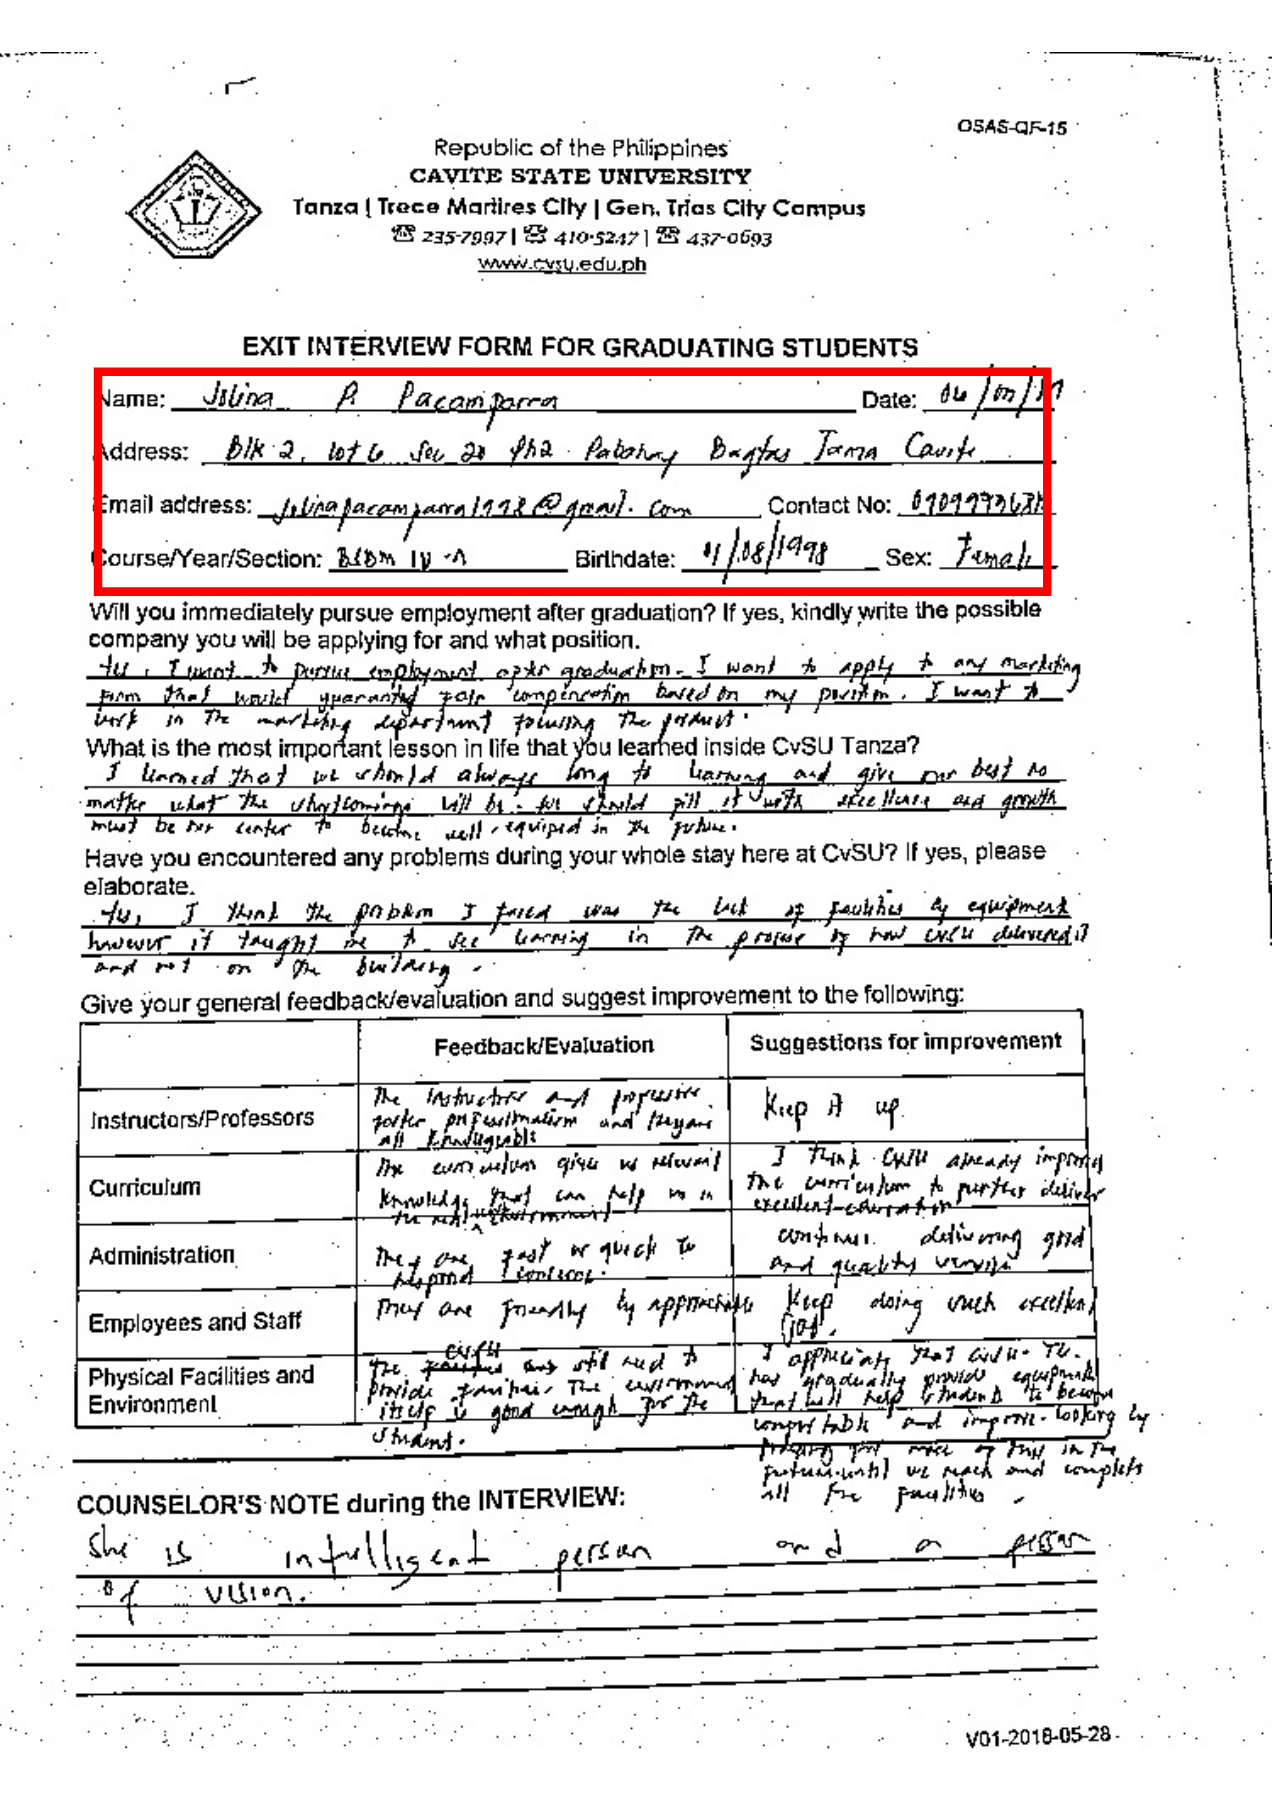 OSAS-QF-15
Republic of the Philippines
CAVITE STATE UNIVERSITY
Tanza | Trece Martires City | Gen. Trias City Campus
☎ 235-7997 | ☎ 410-5247 | ☎ 437-0693
www.cvsu.edu.ph
EXIT INTERVIEW FORM FOR GRADUATING STUDENTS
Name: Jolina P. Pacamparra Date: 06/
Address: Blk 2, Lot 6 Sec 20 Ph2 Pabahay Bagtas Tanza Cavite
Email address: jolinapacamparra1998@gmail.com Contact No:
Course/Year/Section: BSBM IV-A Birthdate: /08/1998 Sex: Female
Will you immediately pursue employment after graduation? If yes, kindly write the possible
company you will be applying for and what position.
Yes, I want to pursue employment after graduation. I want to apply to any marketing
firm that would guaranted fair compencation based on my position. I want to
work in the marketing department focusing the product.
What is the most important lesson in life that you learned inside CvSU Tanza?
I learned that we should always long to learning and give our best no
matter what the shortcomings will be. We should fill it with excellence and growth
must be our center to become well-equiped in the future.
Have you encountered any problems during your whole stay here at CvSU? If yes, please
elaborate.
Yes, I think the problem I faced was the lack of facilities & equipment
however it taught me to see learning in the of how CvSU delivered it
and not on the building.
Give your general feedback/evaluation and suggest improvement to the following:
Feedback/Evaluation
Suggestions for improvement
Instructors/Professors
The instructors and professors
foster and
all knowledgeable
Keep it up.
Curriculum
The curriculum gives us relevant
knowledge that can help us in
the real environment
I think CvSU already improved
the curriculum to further deliver
excellent education
Administration
They are fast or quick to
respond concerns.
continue delivering good
and quality service
Employees and Staff
They are friendly & approachable
Keep doing such excellent
job.
Physical Facilities and
Environment
The CvSU still need to
provide facilities. The environment
itself is good enough for the
student.
I appreciate that CvSU-TC.
has gradually provide equipments
that will help students to become
comfortable and improve. Looking by
for more of this in the
future until we reach and complete
all the facilities.
COUNSELOR'S NOTE during the INTERVIEW:
She is intelligent person and a person
of vision.
V01-2018-05-28